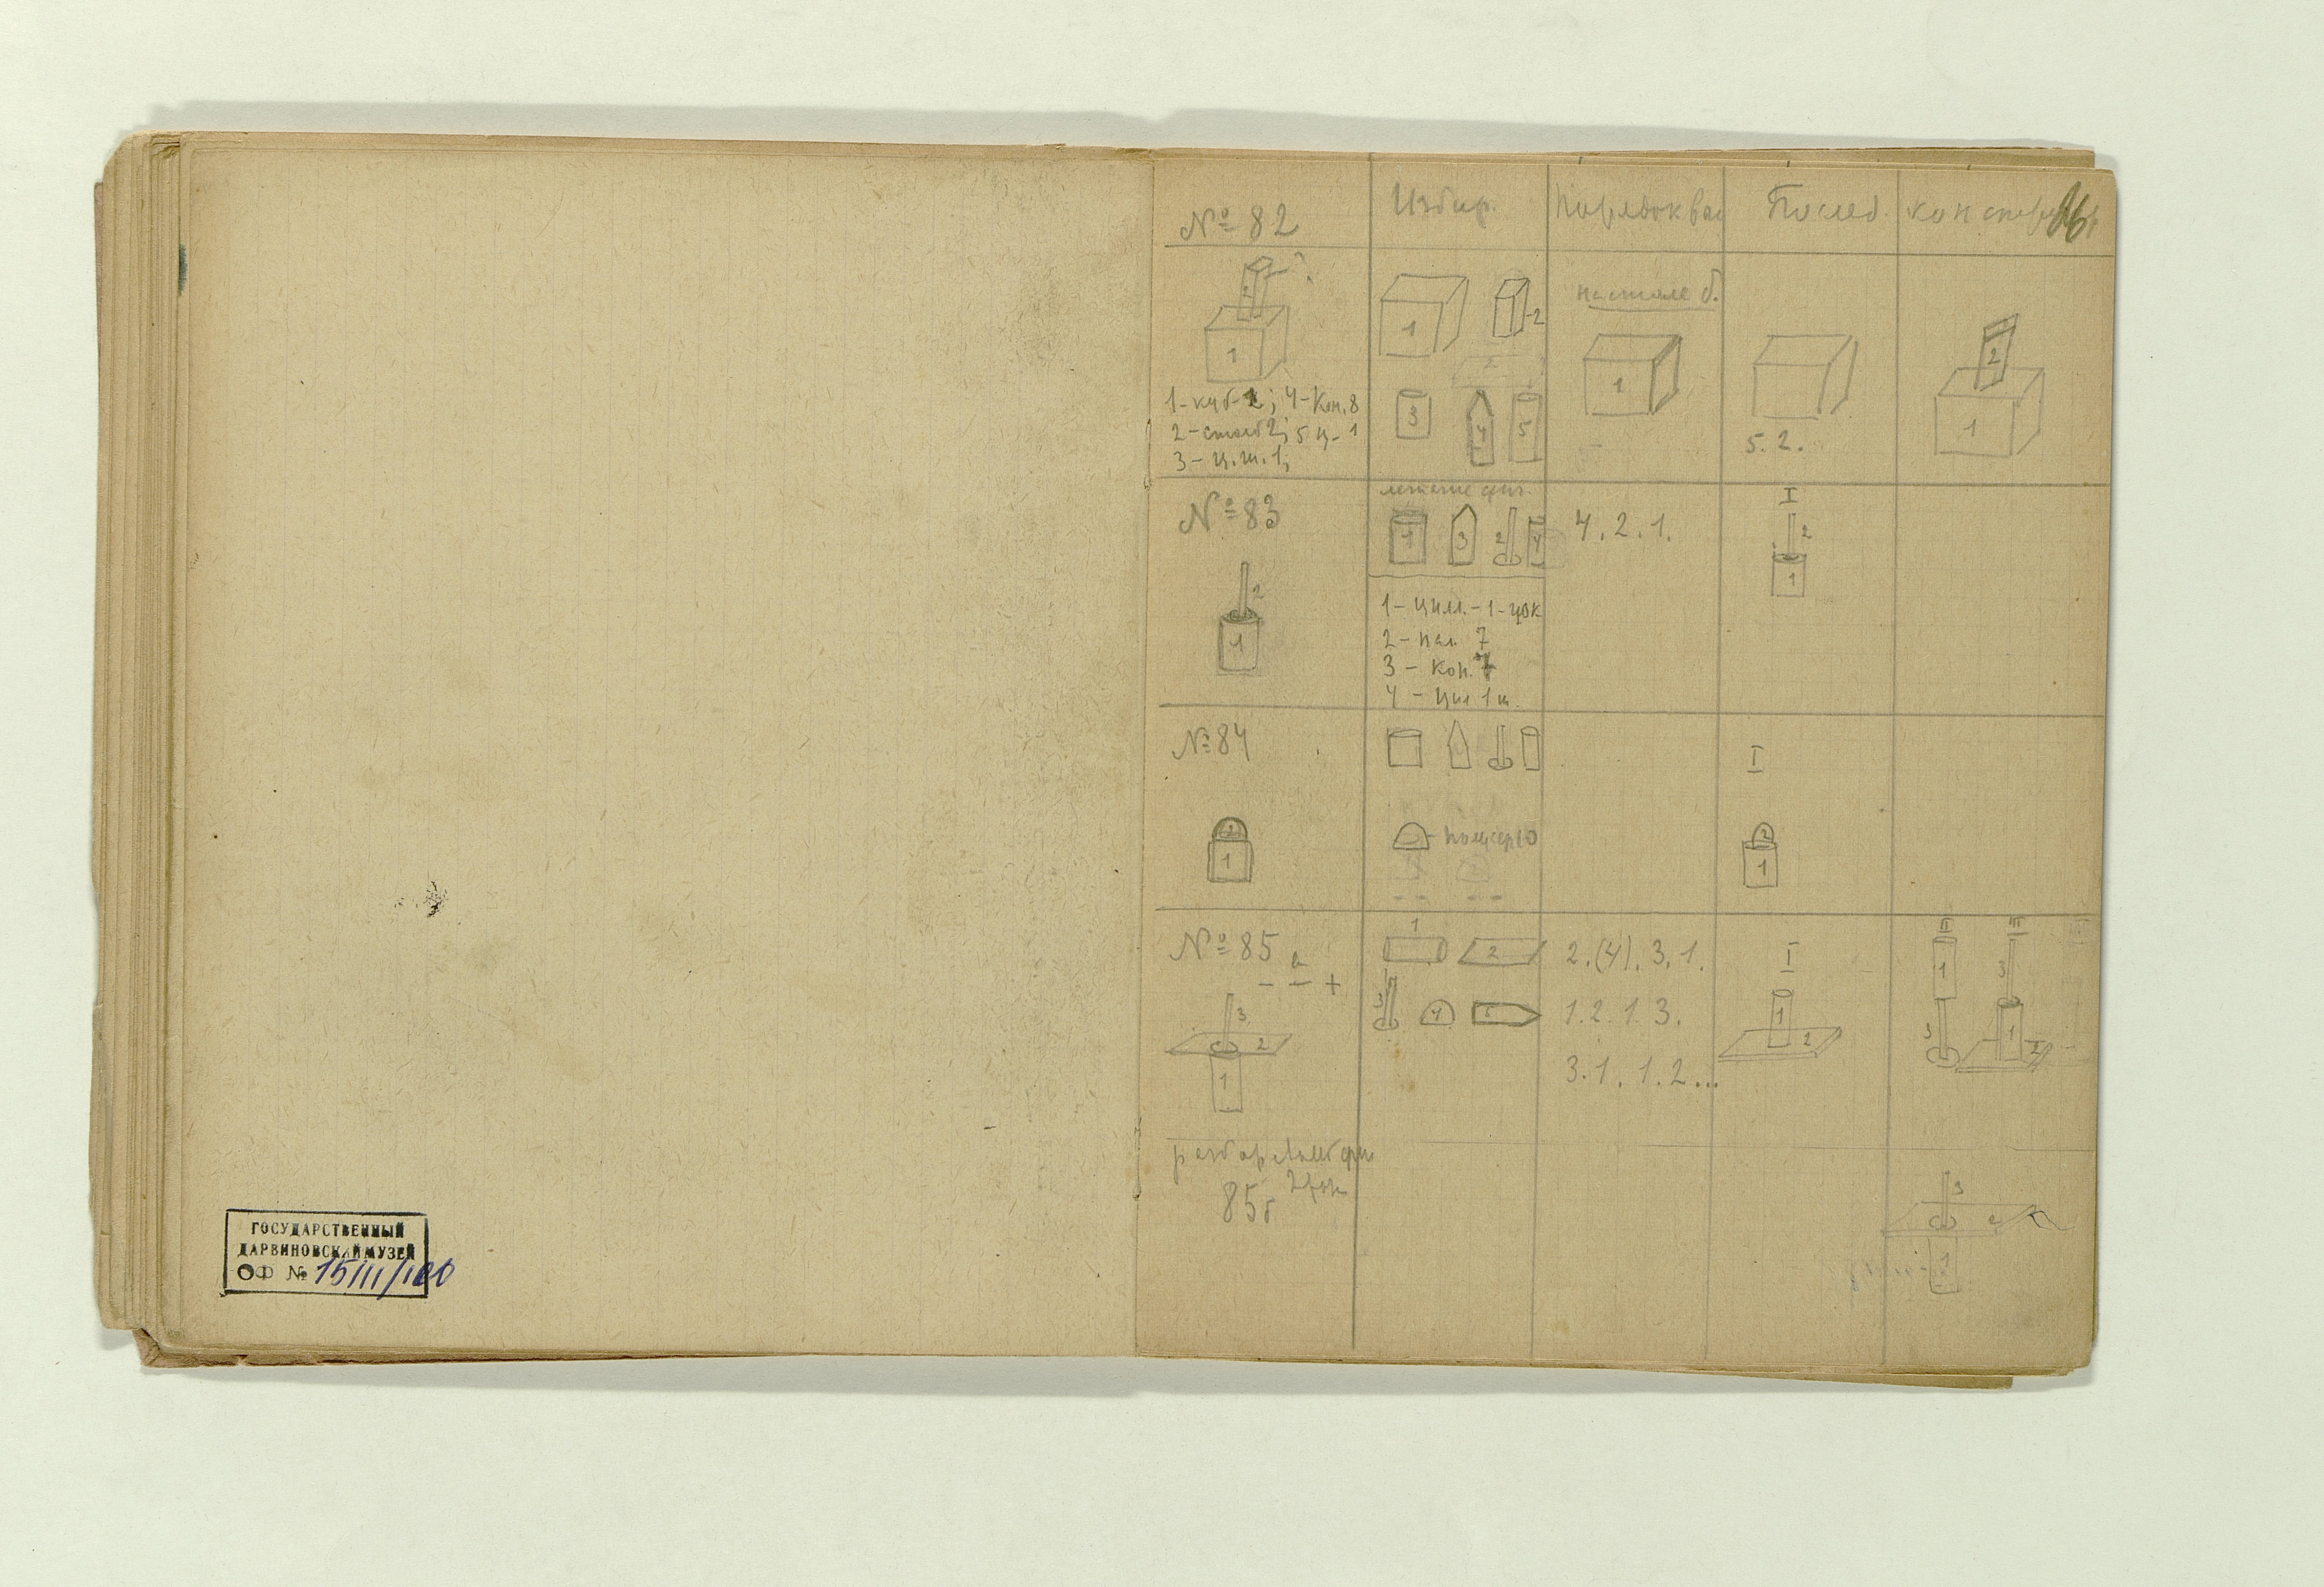 ГОСУДАРСТВЕННЫЙ
ДАРВИНОВСКИЙ МУЗЕЙ
ОФ № 15111/100
№ 82
Избир.
Послед.
1
2
1 - куб 2; 4 - Кон. 8
2 - столб 2; 5 ц - 1
3 - ц. ш. 1;
1
-2
3
4
5
1
5. 2.
2
1
№ 83
2
1
4
3
2
4
1 - цил. - 1 - цок
2 - пал. 7
3 - Кон. 7
4 - Цил 1 ш.
4. 2. 1.
I
2
1
№ 84
2
1
I
2
1
№ 85 а
- - +
3
2
1
1
2
3
4
2. (4). 3. 1.
1. 2. 1. 3.
3. 1. 1. 2...
I
1
2
II
1
3
III
3
1
2
85б
3
2
1